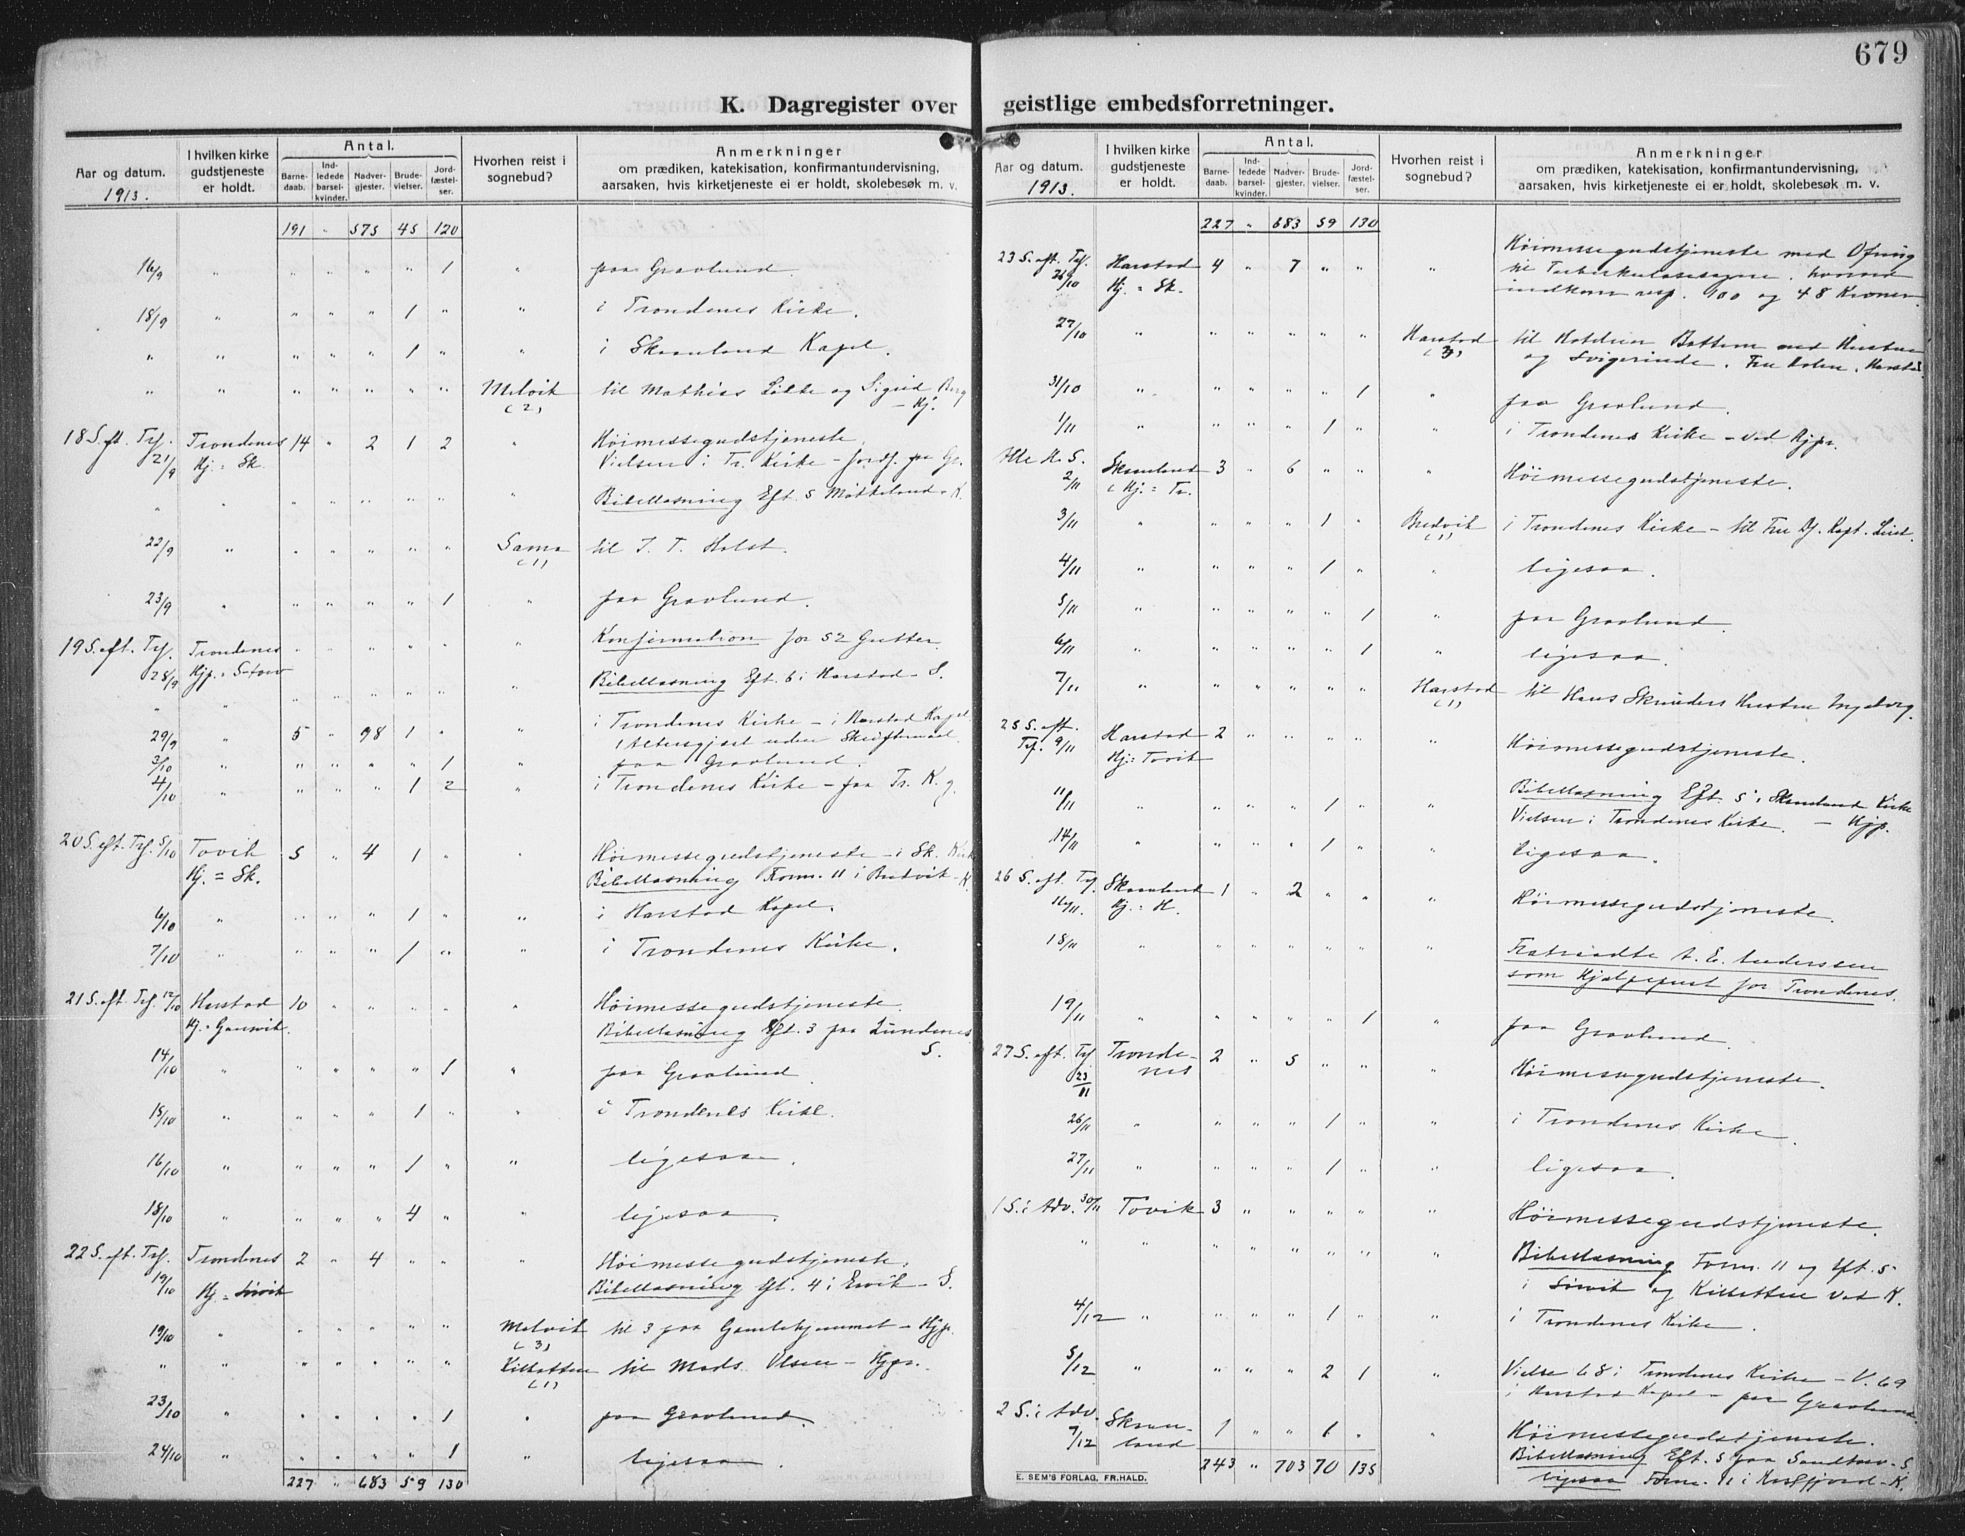 679
K. Dagregister over geistlige embedsforretninger.
Aar og datum. 1913.
I hvilken kirke gudstjeneste er holdt.
Antal.
Barnedaab. Indledede barselkvinder. Nadvergjester. Brudevielser. Jordfæstelser.
Hvorhen reist i sognebud?
Anmerkninger
om prædiken, katekisation, konfirmantundervisning,
aarsaken, hvis kirketjeneste ei er holdt, skolebesøk m. v.
191 " 575 45 120
16/9 " " " " " 1 " paa Gravlund.
18/9 " " " " 1 " " i Trondenes Kirke.
" " " " " 1 " " i Skaanland Kapel.
" " " " " " " Melvik (2) til Mathias Lotte og Sigrid Berg – Hj.
18 S. eft. Trf. 21/9 Trondenes 14 " 2 1 2 " Høimessegudstjeneste.
Hj. = Sk. Vielsen i Tr. Kirke – Jordf. paa Gr.
" " " " " " " " Bibellæsning Eft. 5 Møkkeland – K.
22/9 " " " " " " Sama (1) til J. T. Holst.
23/9 " " " " " 1 " paa Gravlund.
19 S. eft. Trf. 28/9 Trondenes " " " " " " Konfirmation for 52 Gutter.
Hjp. =
" " " " " " " " Bibellæsning Eft. 6 i Harstad – S.
29/9 " 5 " 98 1 " " i Trondenes Kirke – i Harstad Kapel
Altergjest uden Skriftemaal
3/10 " " " " " 1 " paa Gravlund.
4/10 " " " " 1 2 " i Trondenes Kirke – paa Tr. K. g.
20 S. eft. Trf. 5/10 Tovik 5 " 4 1 " " Høimessegudstjeneste – i Sk. Kirke
Hj. = Sk. Bibellæsning Form. 11 i Bredvik – K.
6/10 " " " " 1 " " i Harstad Kapel.
7/10 " " " " 1 " " i Trondenes Kirke.
21 S. eft. Trf. 12/10 Harstad 10 " " " " " Høimessegudstjeneste.
Hj. = Gausvik. Bibellæsning Eft. 3 paa Lundenes
S.
14/10 " " " " " 1 " paa Gravlund
15/10 " " " " 1 " " i Trondenes Kirke.
16/10 " " " " 1 " " ligesaa.
18/10 " " " " 4 " " ligesaa.
22 S. eft. Trf. 19/10 Trondenes 2 " 4 " " " Høimessegudstjeneste.
Hj. = Sørvik Bibellæsning Eft. 4 i Ervik – S.
19/10 " " " " " " Melvik (3) til 3 paa Gamlehjemmet – Hjp.
" " " " " " " Kilbotten (1) til Mads Olsen – Hjpr.
23/10 " " " " " 1 " paa Gravlund.
24/10 " " " " " 1 " ligesaa.
227 " 683 59 130
Aar og datum. 1913.
I hvilken kirke gudstjeneste er holdt.
Antal.
Barnedaab. Indledede barselkvinder. Nadvergjester. Brudevielser. Jordfæstelser.
Hvorhen reist i sognebud?
Anmerkninger
om prædiken, katekisation, konfirmantundervisning,
aarsaken, hvis kirketjeneste ei er holdt, skolebesøk m. v.
227 " 683 59 130
23 S. eft. Trf. 26/10 Harstad 4 " 7 " " " Høimessegudstjeneste med Ofring
Hj. = Sk. til Tuberkulosesagen, hvorved
indkom resp. 100 og 48 Kroner.
27/10 " " " " " " Harstad (3) til Bottern med Hustru
og Svigerinde, Fru Holm, Harstad.
31/10 " " " " " 1 " paa Gravlund.
1/11 " " " " 1 " i Trondenes Kirke – ved Hjpr.
Alle H. S. 2/11 Skaanland 3 " 6 " " " Høimessegudstjeneste.
Hj. = Tr.
3/11 " " " " 1 " Bredvik (1) i Trondenes Kirke – til Fru Kapt.
4/11 " " " " 1 " " ligesaa.
5/11 " " " " " 1 " paa Gravlund.
6/11 " " " " " 1 " ligesaa.
7/11 " " " " " " Harstad (1) til Hans Skrøders Hustru Ingeborg.
25 S. eft. Trf. 9/11 Harstad 2 " " " " " Høimessegudstjeneste.
Hj. = Tovik
11/11 " " " " 1 " " Bibellæsning Eft. 5 i Skaanland Kirke
Vielsen i Trondenes Kirke. – Hjp.
14/11 " " " " 1 " " ligesaa.
26 S. eft. Trf. 16/11 Skaanland 1 " 2 " " " Høimessegudstjeneste.
Hj. = H.
18/11 " " " " " " " Fratraadte A. E. Anderssen
som Hjælpeprest for Trondenes.
19/11 " " " " " 1 " paa Gravlund.
27 S. eft. Trf. 23/11 Trondenes 2 " 5 " " " Høimessegudstjeneste.
26/11 " " " " 1 " " i Trondenes Kirke.
27/11 " " " " 1 " " ligesaa.
1 S. i Adv. 30/11 Tovik 3 " " " " " Høimessegudstjeneste.
" " " " " " " " Bibellæsning Form. 11 og Eft. 5
i Sørvik og Kilbotten ved K.
4/12 " " " " 1 " " i Trondenes Kirke.
5/12 " " " " 2 1 " Vielse 68 i Trondenes Kirke – V. 69
i Harstad Kapel – paa Gravlund.
2 S. i Adv. 7/12 Skaanland 1 " " 6 " Høimessegudstjeneste.
Bibellæsning Eft. 5 paa Sandtorv – S.
ligesaa Form. 11 i – K.
243 " 703 70 135
E. SEM'S FORLAG, FR.HALD.